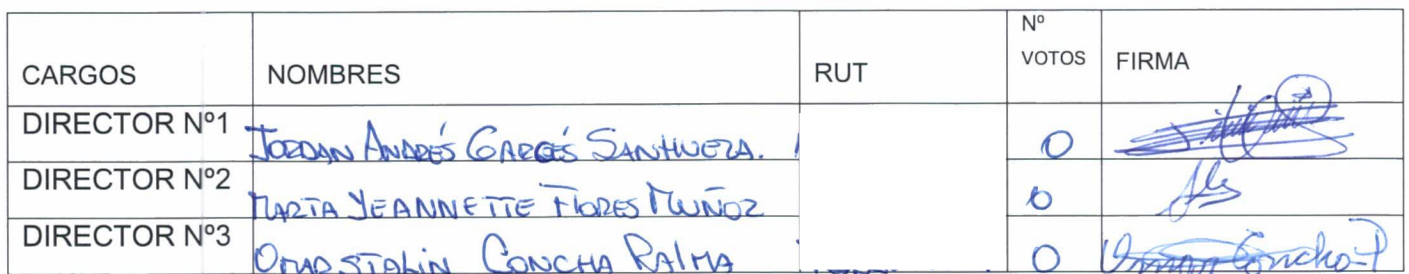 CARGOS NOMBRES RUT Nº VOTOS FIRMA
DIRECTOR Nº1 JORDAN ANDRÉS GARCÉS SANHUEZA. 0
DIRECTOR Nº2 MARTA YEANNETTE FLORES MUÑOZ 0
DIRECTOR Nº3 OMAR STALIN CONCHA PALMA 0 Omar Concha P